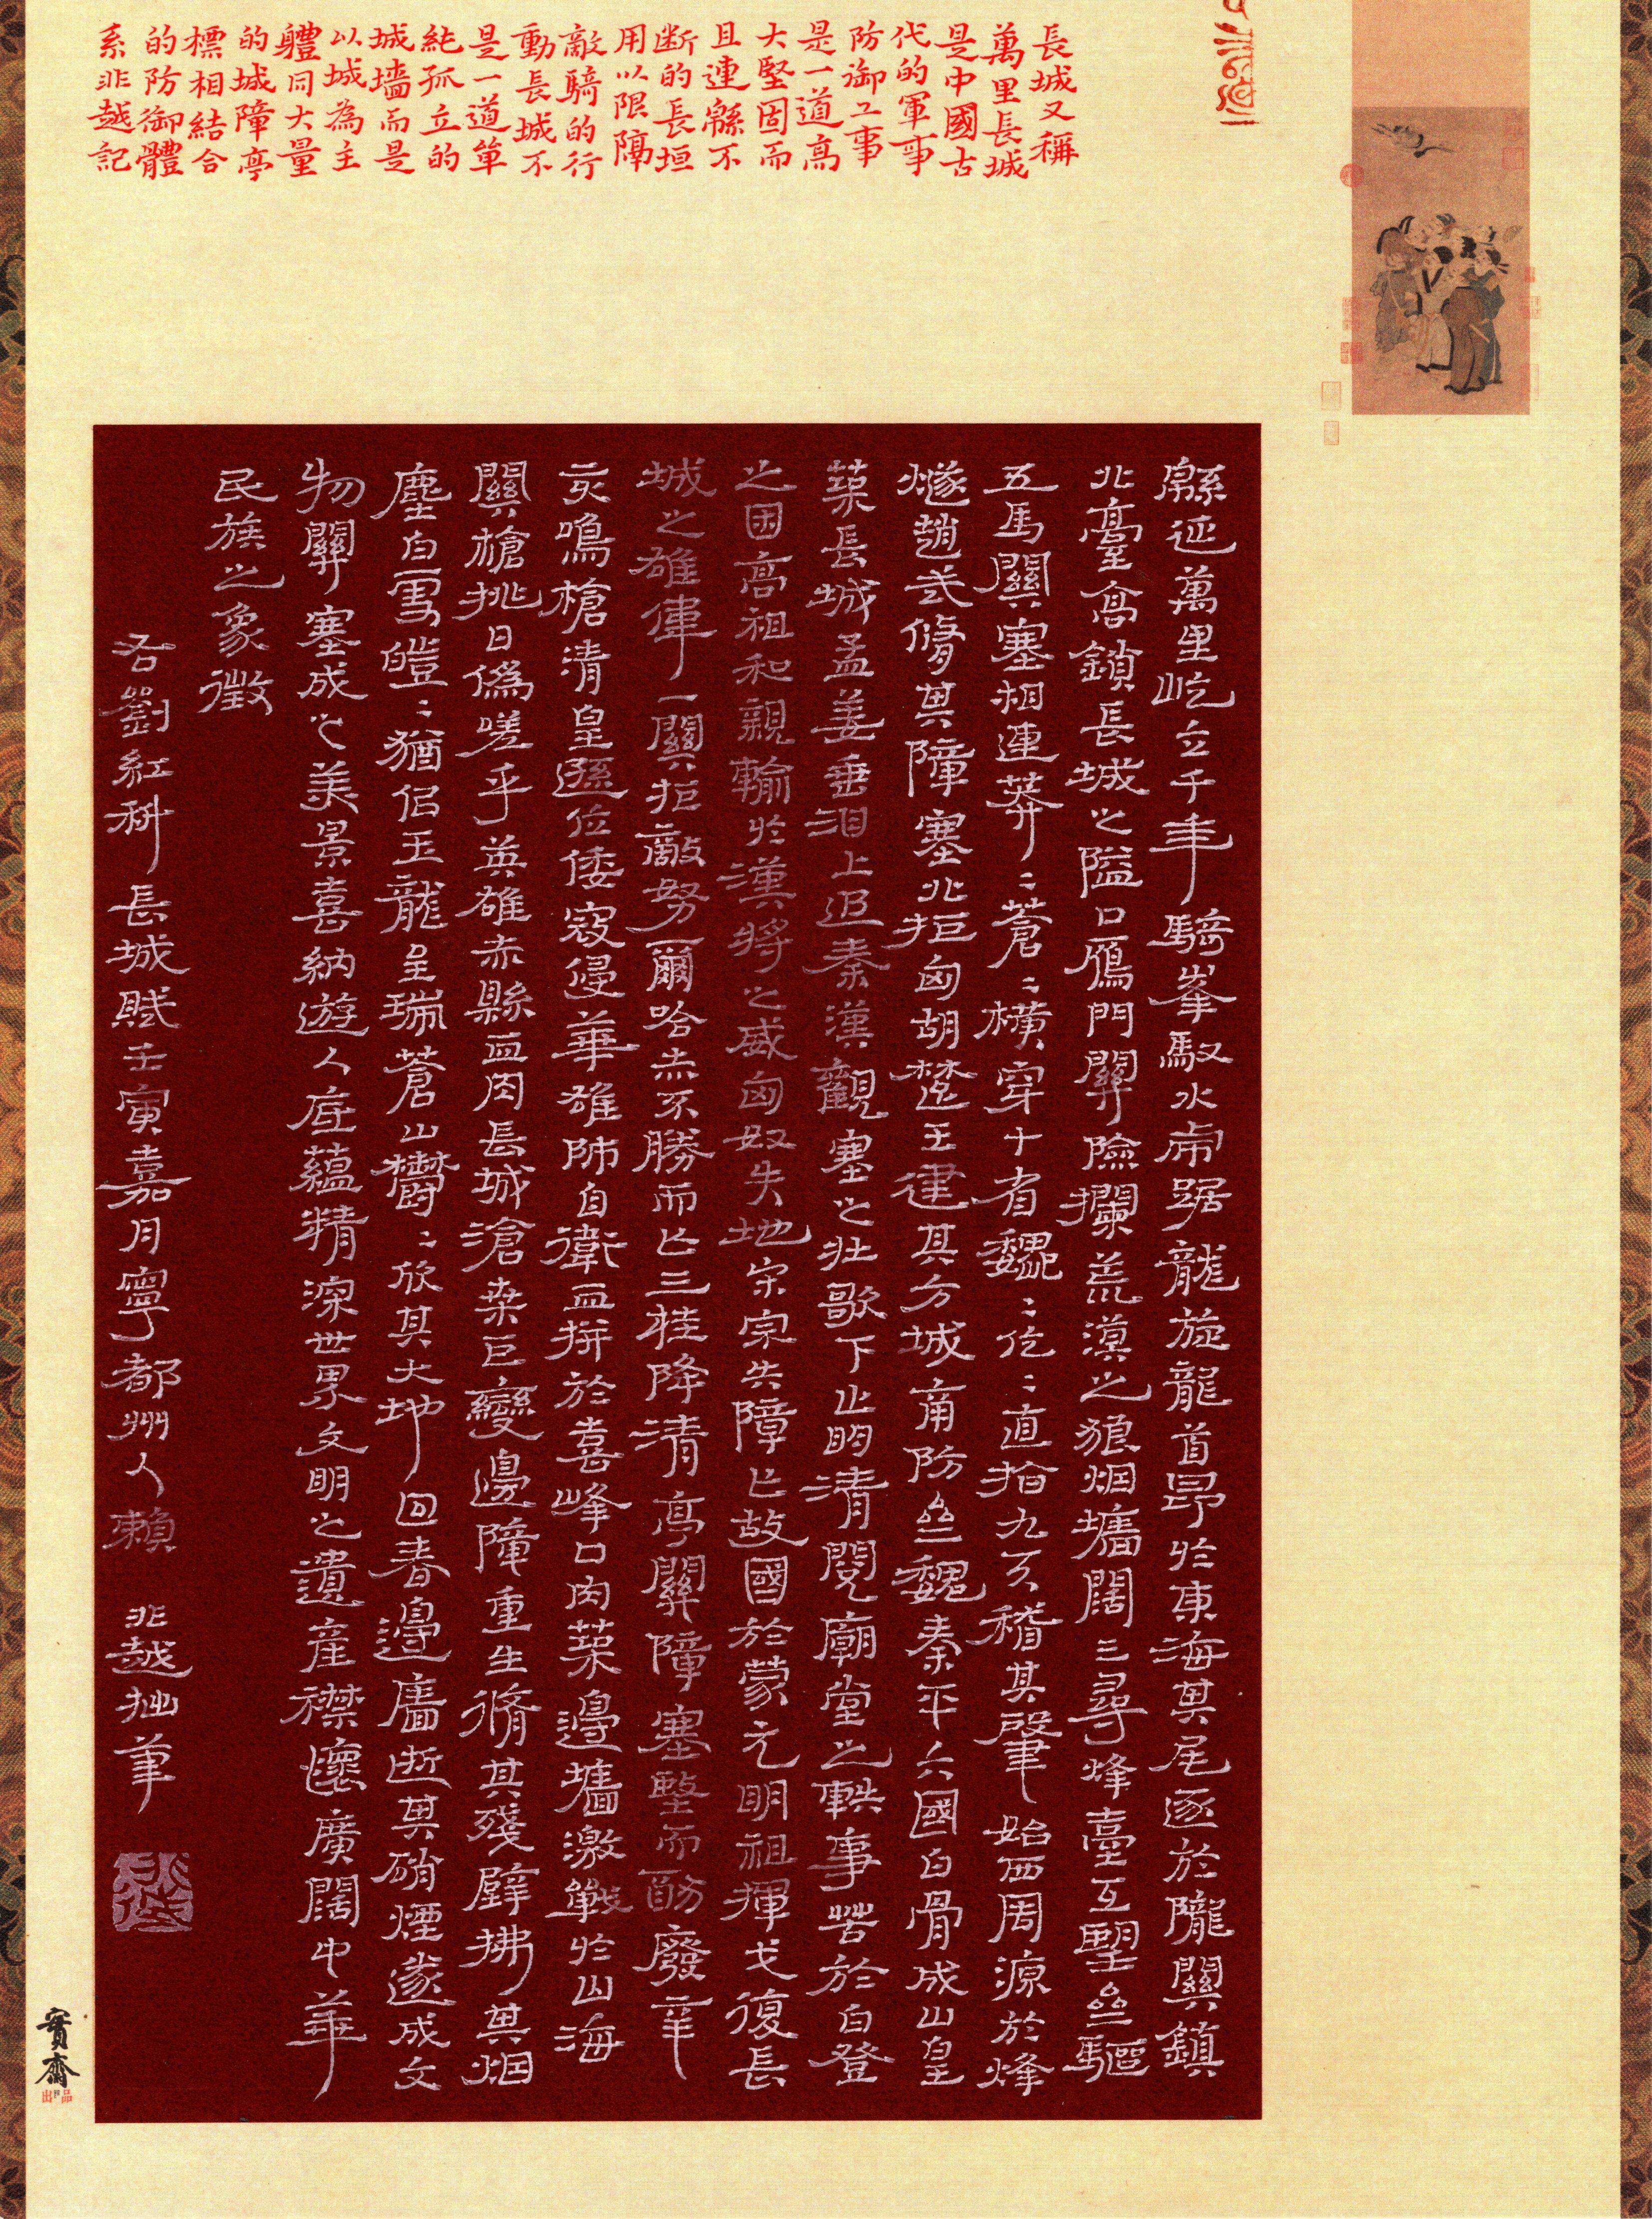 長城又稱
萬里長城
是中國古
代的軍事
防御工事
是一道高
大堅固而
且連緜不
断的長垣
用以限隔
敵騎的行
動長城不
是一道單
純孤立的
城墻而是
以城為主
軆同大量
的城障亭
標相結合
的防御體
系非越記
緜延萬里屹立千年騎峯馭水虎踞龍旋龍首昂於東海其尾逐於隴關鎮
北臺高鎖長城之隘口鴈門關險攔荒漠之狼烟墻闊三尋烽臺互望並驅
五馬關塞相連莽〻蒼〻橫穿十省巍〻仡〻直指九天稽其肇始西周源於烽
燧趙武脩其障塞北拒匈胡楚王建其方城南防並魏秦平六國白骨成山皇
築長城孟姜垂泪上追秦漢觀塞之壯歌下止明清閱廟堂之軼事苦於白登
之困高祖和親輸於漢將之威匈奴失地宋宗失障亡故國於蒙元明祖揮戈復長
城之雄偉一關拒敵努爾哈赤不勝而亡三桂降清亭關障塞墼而酚廢辛
亥鳴槍清皇遜位倭寇侵華雄師自衛血拼於喜峰口內築邊墻激戰於山海
關槍挑日僞嗟乎英雄赤縣血肉長城滄桑巨變邊障重生脩其殘壁拂其烟
塵白雪皚〻猶侣玉龍呈瑞蒼山欝〻欣其大地回春邊墻逝其硝煙遂成文
物關塞成之美景喜納遊人底蘊精深世界文明之遺產襟懷廣闊中華
民族之象徵
右劉紅科長城賦壬寅嘉月寧都州人賴 非越拙筆
寶齋
出品